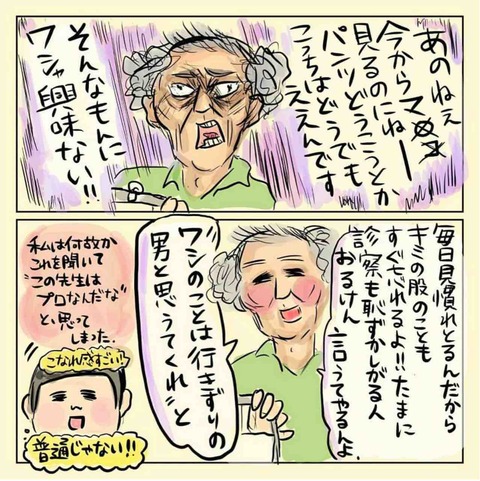 あのねぇ
今からマ
見るのにねー
パンツどうこうとか
こっちはどうでも
ええんです
そんなもんに
ワシャ興味ない!!
毎日見慣れとるんだから
キミの股のことも
すぐ忘れるよ!!たまに
診察も恥ずかしがる人
おるけん言うてやるんよ.
"ワシのことは行きずりの
男と思うてくれ"と
私は何故か
これを聞いて
"この先生は
プロなんだな"
と、思って
しまった.
こなれ感すごい!
普通じゃない!!